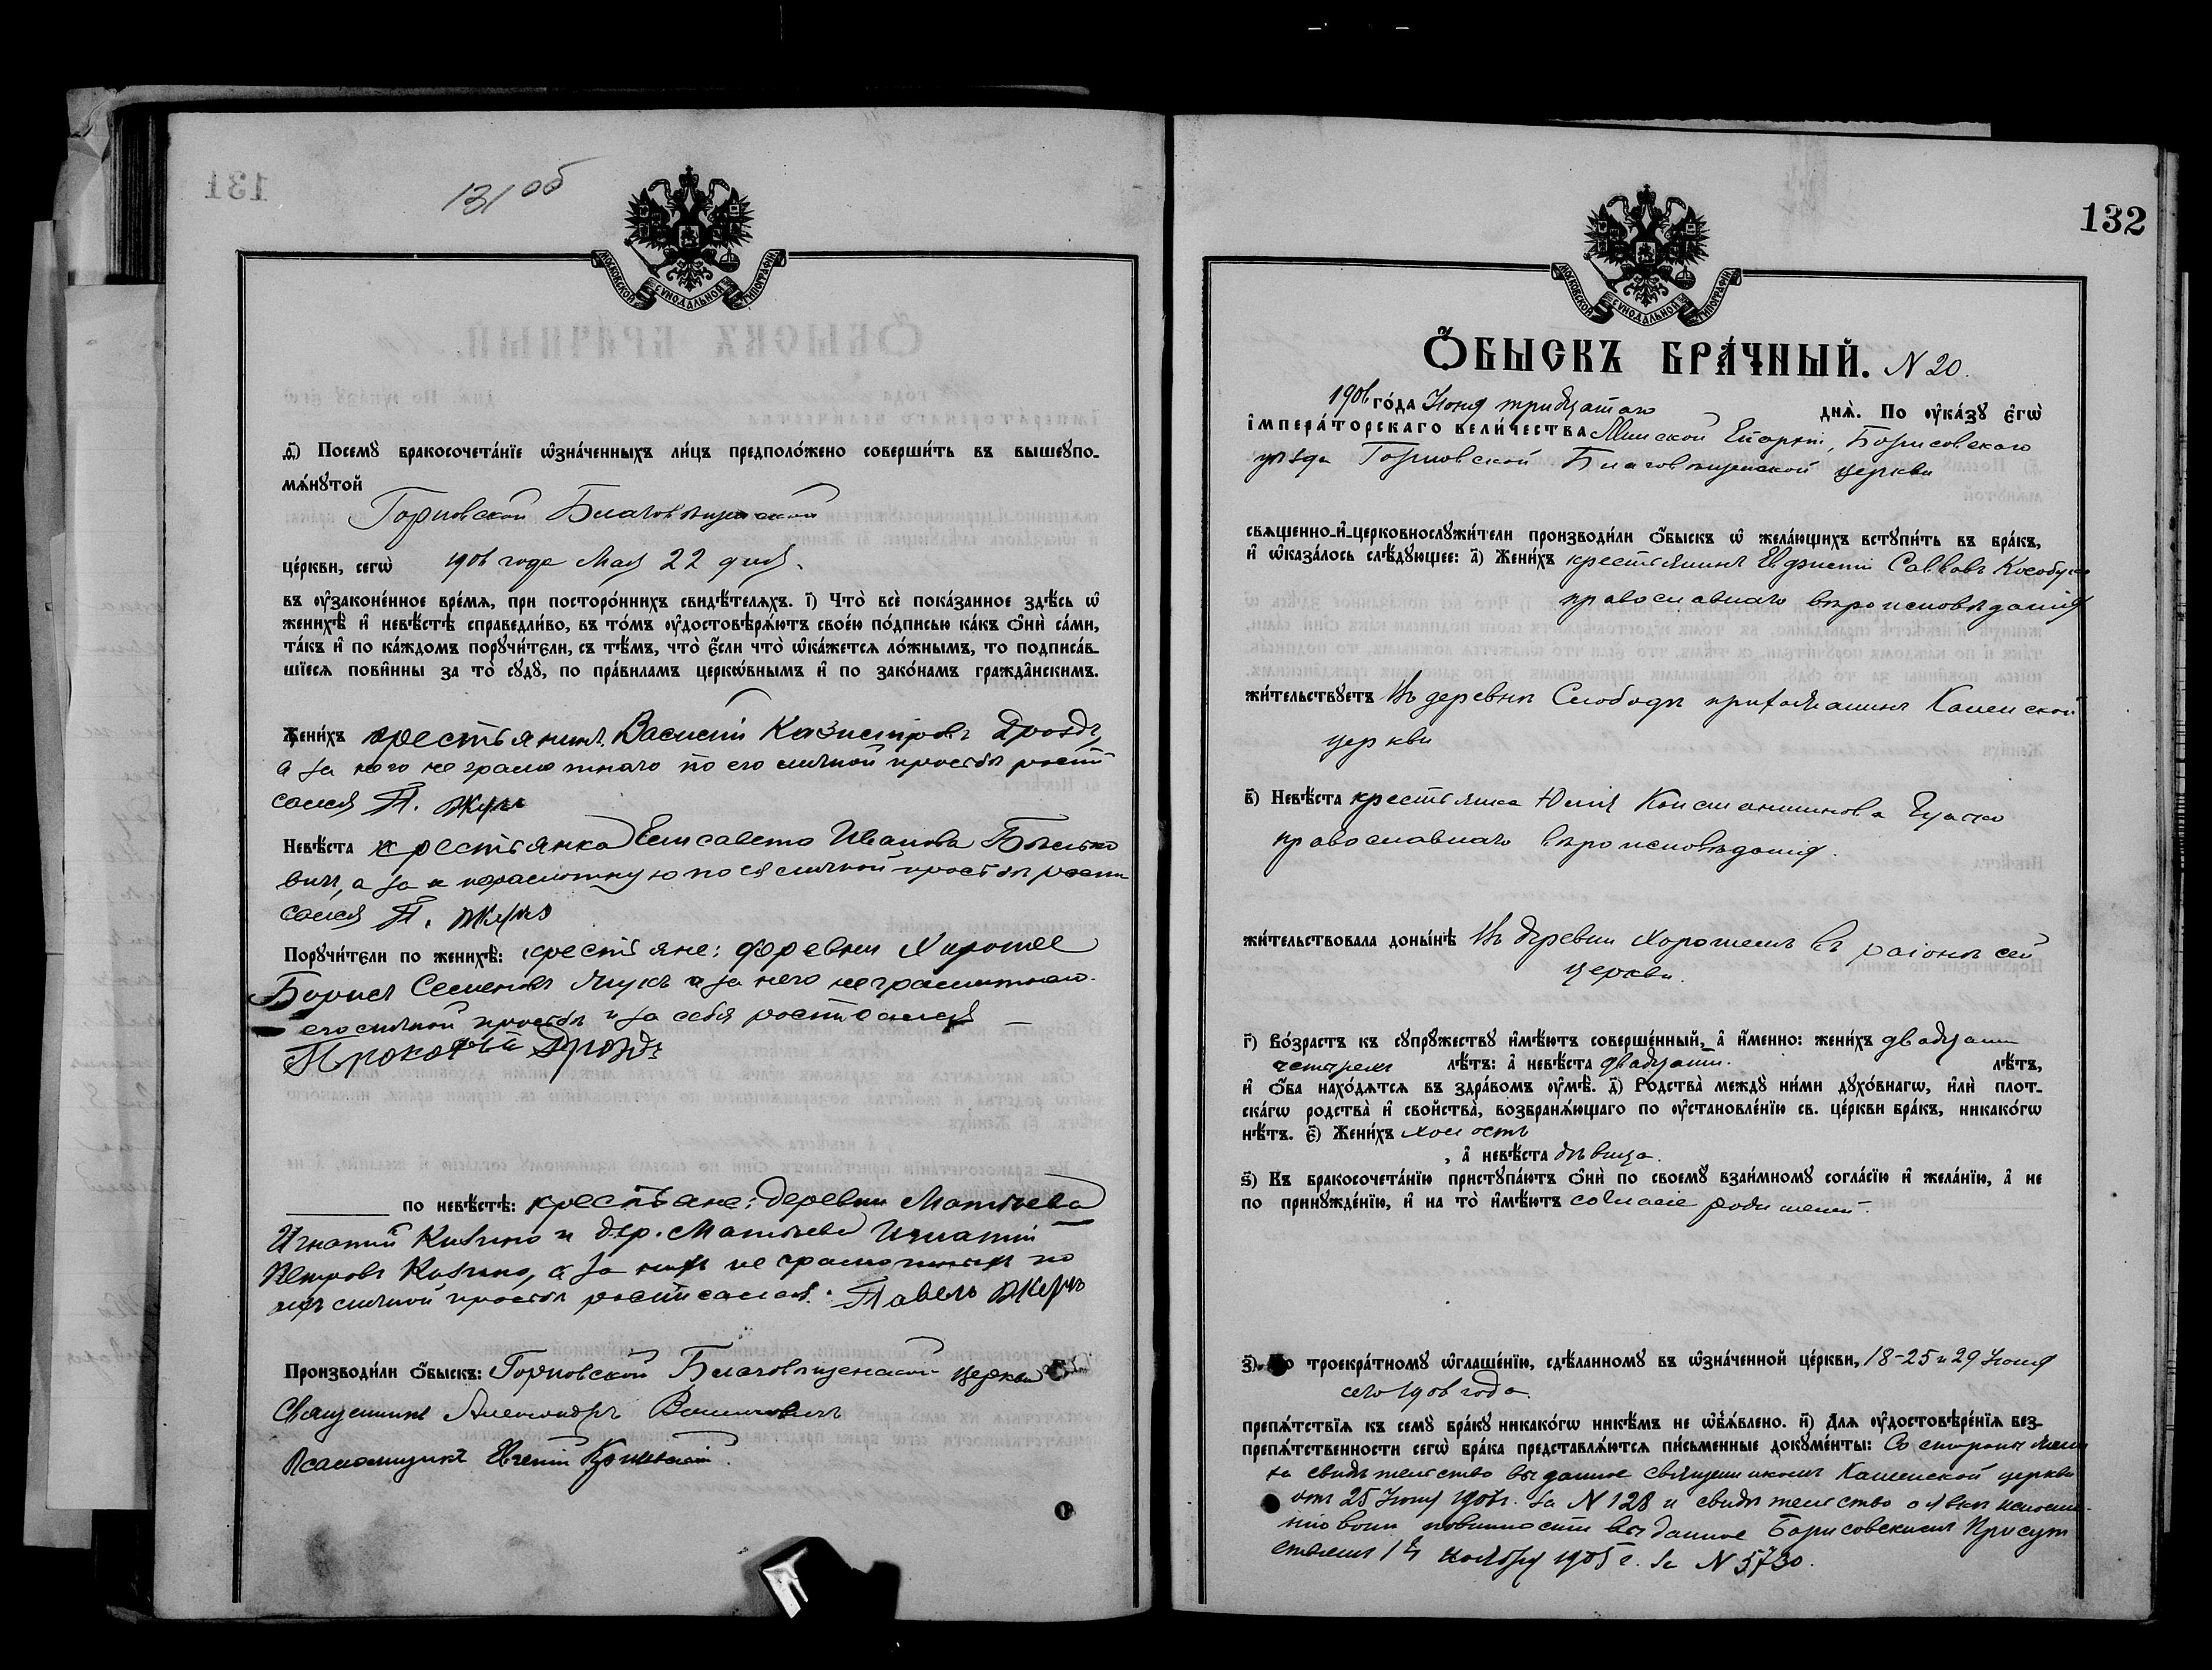 131
131 об
МОСКОВСКОЙ СУНОДАЛЬНОЙ ТИПОГРАФІИ
ѳ҃) Посемꙋ̀ бракосочета́нїе ѡ҆зна́ченныхъ ли́цъ предполо́жено соверши́ть въ вышеꙋпо-
мѧ́нꙋтой
Горновской Благовѣщенской
це́ркви, сегѡ̀ 1906 года Мая 22 дня.
въ ᲂу҆законе́нное вре́мѧ, при посторо́ннихъ свидѣ́телѧхъ. і҃) Что̀ всѐ пока́занное здѣ́сь ѡ҆
женихѣ̀ и҆ невѣ́стѣ справедли́во, въ то́мъ ᲂу҆достовѣрѧ́ютъ свое́ю по́дписью ка́къ ѻ҆нѝ са́ми,
та́къ и҆ по ка́ждомъ порꙋчи́тели, съ тѣ́мъ, что̀ є҆́сли что̀ ѡ҆ка́жется ло́жнымъ, то подписа́в-
шїеся пови́нны за то̀ сꙋдꙋ̀, по пра́виламъ церко́внымъ и҆ по зако́намъ гражда́нскимъ.
Жени́хъ крестьянинъ Василій Казиміровъ Дроздъ,
а за него неграмотнаго по его личной просьбѣ роспи
сался П.
Невѣ́ста крестьянка Елисавета Иванова Бѣлько
вич, а за неграмотную по ея личной просьбѣ роспи
сался П.
Порꙋчи́тели по женихѣ̀: крестьяне: деревни Хорошее
Борисъ Семеновъ а за него неграмотнаго
его личной просьбѣ и за себя росписался
Прокофій Дроздъ
по невѣ́стѣ: крестьяне: деревни Матьева
Игнатій и дер. Матьева Игнатій
Петровъ а за нихъ неграмотныхъ по
ихъ личной просьбѣ росписался: Павелъ
Производи́ли ѻ҆́быскъ: Горновской Благовѣщенской церкви
Священникъ Александръ
Псаломщикъ Евгеній
132
МОСКОВСКОЙ СУНОДАЛЬНОЙ ТИПОГРАФІИ
Ѻ҆́БЫСКЪ БРА́ЧНЫЙ. N 20.
1906 го́да Іюня тридцатаго днѧ̀. По ᲂу҆ка́зꙋ є҆гѡ̀
і҆мпера́торскаго вели́чества Минской Епархіи, Борисовскаго
уѣзда Горновской Благовѣщенской церкви
свѧще́нно-и҆-церковнослꙋжи́тели производи́ли ѻ҆́быскъ ѡ҆ жела́ющихъ встꙋпи́ть въ бра́къ,
и҆ ѡ҆каза́лось слѣ́дꙋющее: а҃) Жени́хъ крестьянинъ Евфимій Саввовъ
православнаго вѣроисповѣданія
жи́тельствꙋетъ Въ деревнѣ Слободѣ прихожанинъ Каменской
церкви
в҃) Невѣ́ста крестьянка Юлія Константинова
православнаго вѣроисповѣданія.
жи́тельствовала доны́нѣ Въ деревни Хорошемъ въ районѣ сей
церкви.
г҃) Во́зрастъ къ сꙋпрꙋ́жествꙋ и҆мѣ́ютъ соверше́нный, а҆ и҆́менно: жени́хъ двадцати
четырехъ лѣ́тъ: а҆ невѣ́ста двадцати. лѣ́тъ,
и҆ ѻ҆́ба нахо́дятся въ здра́вомъ ᲂу҆мѣ̀. д҃) Родства̀ междꙋ̀ ни́ми дꙋхо́внагѡ, и҆лѝ плот-
ска́гѡ родства̀ и҆ сво́йства̀, возбранѧ́ющаго по ᲂу҆становле́нїю св. це́ркви бра́къ, никако́гѡ
нѣ́тъ. є҃) Жени́хъ холостъ
, а҆ невѣ́ста дѣвица.
ѕ҃) Къ бракосочета́нїю пристꙋпа́ютъ ѻ҆нѝ по своемꙋ̀ взаи́мномꙋ согла́сїю и҆ жела́нїю, а҆ не
по принꙋжде́нїю, и҆ на то̀ и҆мѣ́ютъ согласіе родителей.
з҃) По троекра́тномꙋ ѡ҆глаше́нїю, сдѣ́ланномꙋ въ ѡ҆зна́ченной це́ркви, 18-25 и 29 Іюня
сего 1906 года
препѧ́тствїѧ къ семꙋ̀ бра́кꙋ никако́гѡ никѣ́мъ не ѡ҆б̾ѧ́влено. и҃) Для ᲂу҆достовѣре́нїѧ без-
препѧ́тственности сегѡ̀ бра́ка представлѧ́ются пи́сьменные докꙋме́нты: Со стороны жени
ха свидѣтельство выданное священникомъ Каменской церкви
отъ 25 Іюня 1906 г. за N 128 и свидѣтельство о явкѣ къ исполне-
нію воин. повинности выданное Борисовскимъ Присут
ствіемъ Ноября 1905 г. за N 5730.